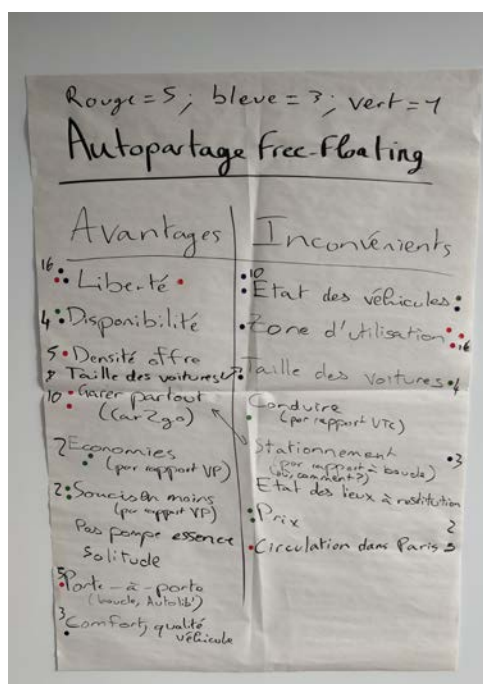 Rouge = 5 ; bleue = 3 ; vert = 1
Autopartage Free-Floating
Avantages
16 Liberté
4 Disponibilité
5 Densité offre
8 Taille des voitures
10 Garer partout
(Car2go)
2 Economies
(par rapport VP)
2 Soucis en moins
(par rapport VP)
Pas pompe essence
Solitude
5 Porte-à-porte
(boucle, Autolib')
3 Comfort, qualité
véhicule
Inconvénients
10
Etat des véhicules
Zone d'utilisation
16
Taille des voitures 4
Conduire
(par rapport VTC)
Stationnement 3
(par rapport à boucle)
(où, comment ?)
Etat des lieux à restitution
Prix 2
Circulation dans Paris 5